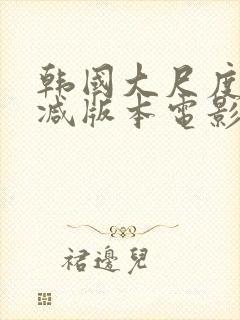 韩国大尺度
减版本电影
裙邊兒